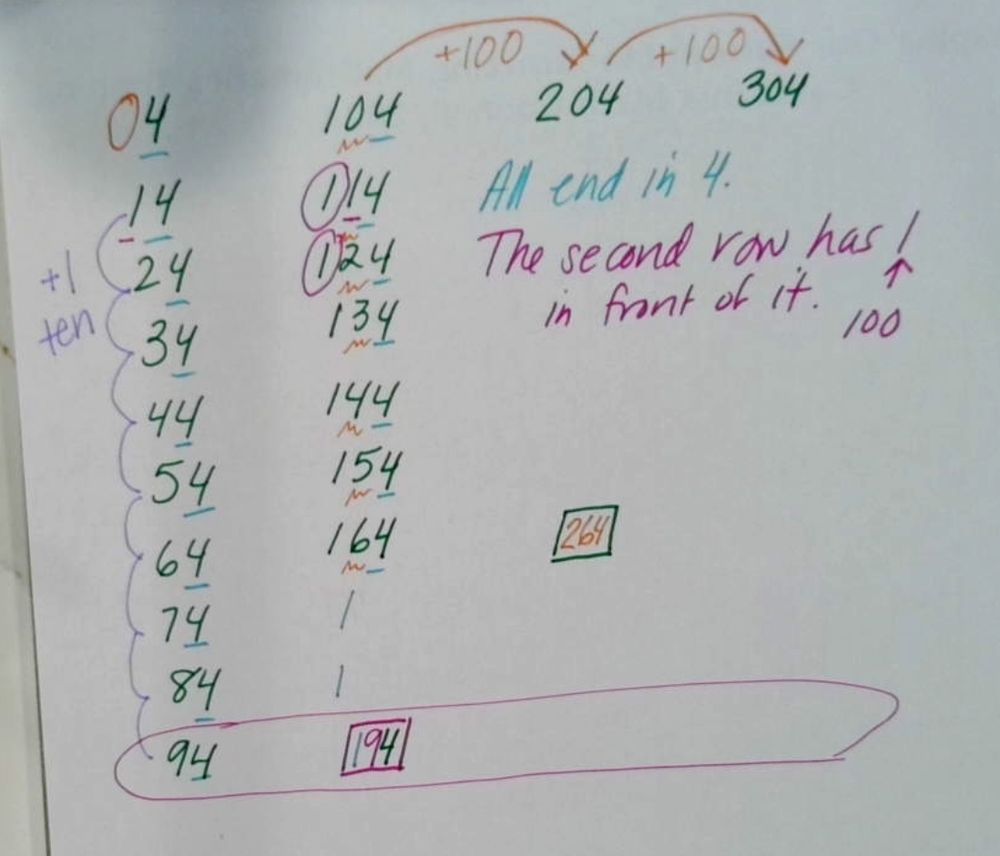 +100 +100
04 104 204 304
14 114 All end in 4.
+1 24 124 The second row has 1
ten 34 134 in front of it. 100
44 144
54 154
64 164 264
74 1
84 1
94 194